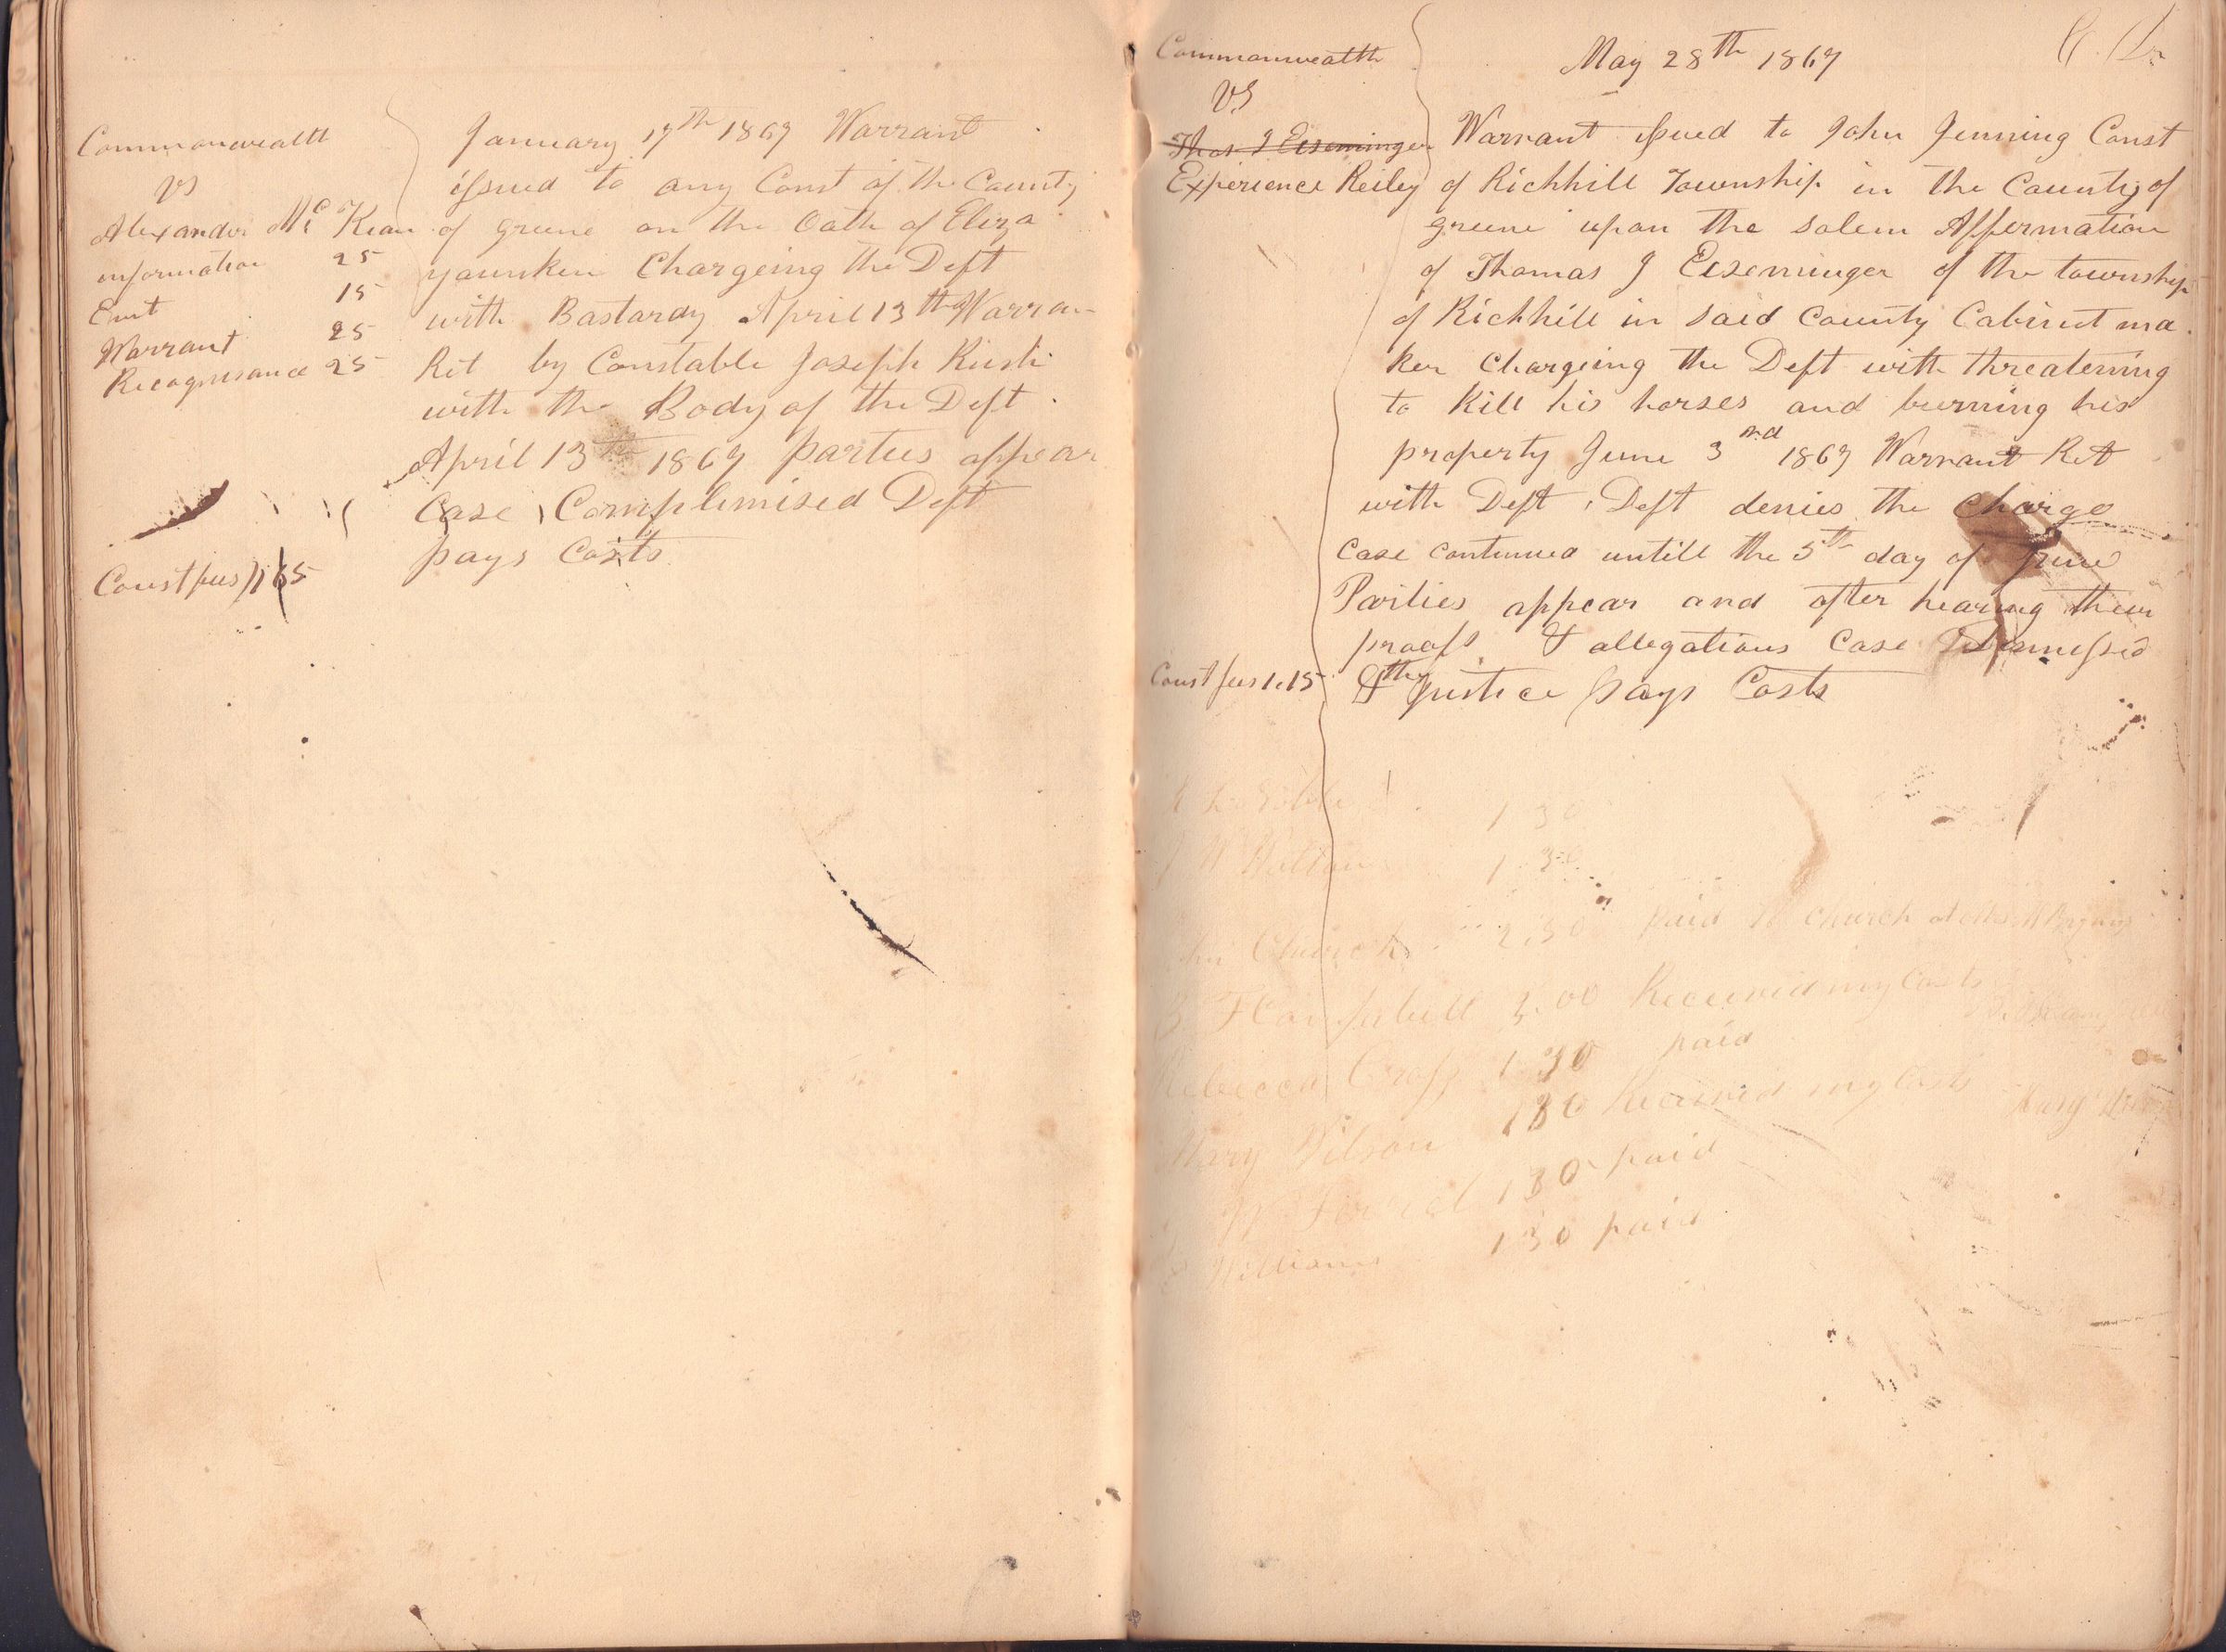 Commonwealth
vs
Alexander McKean
information 25
Ent 15
Warrant 25
Recognisance 25
Const fees 1.65
January 17th 1867 Warrant
issued to any Const of the County
of greene on the Oath of Eliza
younken Chargeing the Deft
with Bastardy April 13th Warran
Ret by Constable Joseph Rush
with the Body of the Deft
April 13th 1867 parties appear
Case Complimised Deft
pays Costs
Commonwealth
VS
Thos J Eiseminger
Experience Reiley
Const fees 1.15
May 28th 1867
Warrant issued to John Jenning Const
of Richhill Township in the County of
greene upon the Solem Affermation
of Thomas J Eiseminger of the township
of Richhill in Said County Cabinet ma
ker Chargeing the Deft with threatening
to Kill his horses and burning his
property June 3rd 1867 Warrant Ret
with Deft Deft denies the Charge
Case continued untill the 5th day of June
Parties appear and after hearing their
proofs & allegations Case Dismissed
& the Justice pays Costs
1 30
1 30
Church 2.50 paid to Church
3.00 Received my Costs
Rebecca Cross 1 30 paid
Mary Wilson 1 30 Received my Costs
1 30 paid
Williams 1 30 paid